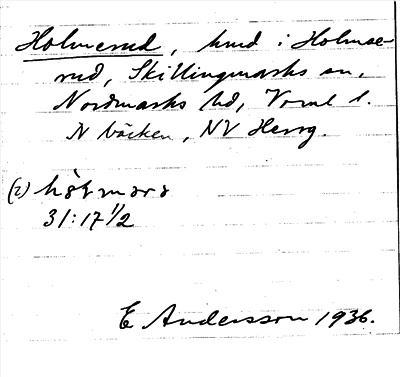 Holmerud, hmd i Holmse
rud, Skillingmarks sn,
Nordmarks hd, Vrml l.
N bäcken, NV Herrg.
(2)
31:17 1/2
E Andersson 1936.